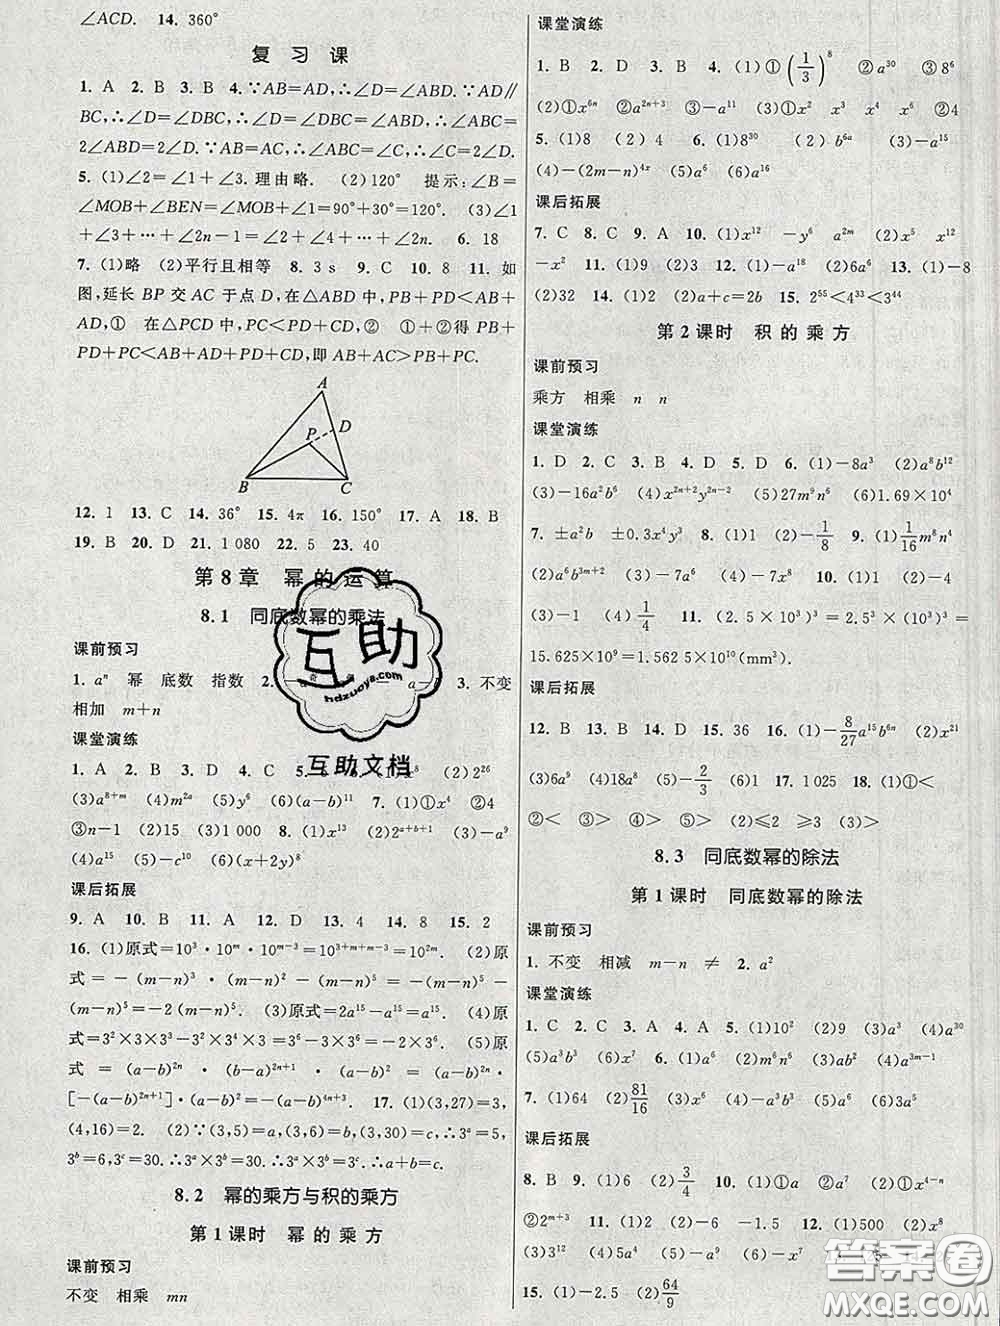 ∠ACD.  14. 360°
复 习 课
1. A  2. B  3. B  4. ∵AB=AD,∴∠D=∠ABD. ∵AD∥
BC,∴∠D=∠DBC,∴∠D=∠DBC=∠ABD,∴∠ABC=
2∠ABD=2∠D. ∵AB=AC,∴∠ABC=∠C,∴∠C=2∠D.
5. (1)∠2=∠1+∠3. 理由略.  (2)120°  提示:∠B=
∠MOB+∠BEN=∠MOB+∠1=90°+30°=120°.  (3)∠1
+∠3+…+∠2n-1=∠2+∠4+…+∠2n  6. 18
7. (1)略  (2)平行且相等  8. 3 s  9. C  10. 8  11. 如
图,延长 BP 交 AC 于点 D,在△ABD 中,PB+PD<AB+
AD,①  在△PCD 中,PC<PD+CD,②  ①+②得 PB+
PD+PC<AB+AD+PD+CD,即 AB+AC>PB+PC.
A
D
P
B  C
12. 1  13. C  14. 36°  15. 4π  16. 150°  17. A  18. B
19. B  20. D  21. 1 080  22. 5  23. 40
第 8 章  幂 的 运 算
8.1  同底数幂的乘法
课前预习
1. aⁿ  幂  底数  指数  2.  3. 不变
相加  m+n
课堂演练
1. A  2. B  3. D  4. C  5.  (2)2²⁶
(3)a⁸⁺ᵐ  (4)m²ᵃ  (5)y⁶  (6)(a-b)¹¹  7. (1)①x⁴  ②4
③n-1  (2)15  (3)1 000  8. (1)x¹³  (2)2ᵃ⁺ᵇ⁺¹  (3)-a⁹
(4)a¹⁵  (5)-c¹⁰  (6)(x+2y)⁸
课后拓展
9. A  10. B  11. A  12. D  13. 4  14. 8  15. 2
16. (1)原式=10³·10ᵐ·10ᵐ⁻³=10³⁺ᵐ⁺ᵐ⁻³=10²ᵐ.  (2)原
式=-(m-n)³·(m-n)²-(m-n)⁵=-(m-n)⁵-
(m-n)⁵=-2(m-n)⁵.  (3)原式=2a¹⁵-a¹⁵=a¹⁵.  (4)原
式=3²×3⁴×3-3²×3⁴×3=3⁷-3⁷×3=-2×3⁷.  (5)原
式=(a-b)²ⁿ·(a-b)²ⁿ⁺¹·(a-b)²=(a-b)²ⁿ·
[-(a-b)²ⁿ⁺¹]·(a-b)²=-(a-b)⁴ⁿ⁺³.  17. (1)(3,27)=3,
(4,16)=2.  (2)∵(3,5)=a,(3,6)=b,(3,30)=c,∴3ᵃ=5,
3ᵇ=6,3ᶜ=30.∴3ᵃ×3ᵇ=30.∴3ᵃ×3ᵇ=3ᶜ.∴a+b=c.
8.2  幂的乘方与积的乘方
第 1 课时  幂 的 乘 方
课前预习
不变  相乘  mn
课堂演练
1. B  2. D  3. B  4. (1)①(1/3)⁸  ②a³⁰  ③8⁶
(2)①x⁶ⁿ  ②a²ⁿ⁺³  ③-a¹¹  (3)①x²  x³  x⁴  x⁶  ②4
5. (1)8  (2)4  6. (1)8³⁰  (2)b⁶ᵃ  (3)-a¹⁵
(4)-(2m-n)⁴ˣ  (5)a⁸  (6)a¹⁶
课后拓展
7. C  8. C  9. A  10. (1)x¹²  -y⁶  a²ᵐ  (2)x⁵  x⁷
-x²  11. (1)6  (2)3  12. (1)-a¹⁸  (2)6a⁶  13. (1)-8
(2)32  14. (1)2  (2)a+c=2b  15. 2⁵⁵<4³³<3⁴⁴
第 2 课时  积 的 乘 方
课前预习
乘方  相乘  n  n
课堂演练
1. D  2. C  3. D  4. B  5. D  6. (1)-8a³  (2)a⁸b¹²
(3)-16a⁸b⁴  (4)x²ⁿ⁺²y²ⁿ⁻²  (5)27m⁹n⁶  (6)1.69×10⁴
7. ±a²b  ±0.3x⁴y³  8. (1)1  (2)-1/8  9. (1)1/16m⁸n⁴
(2)a⁶b³ᵐ⁺³  (3)2a¹²  (4)-7x⁹  10. (1)1  (2)1
(3)-1  (4)1/4  11. (2.5×10³)³=2.5³×(10³)³=
15.625×10⁹=1.562 5×10¹⁰(mm³).
课后拓展
12. B  13. B  14. D  15. 36  16. (1)-8/27a¹⁵b⁶ⁿ  (2)x²¹
(3)6a⁹  (4)18a⁶  (5)-2/3  (6)1  17. 1 025  18. (1)①<
②<  ③>  ④>  ⑤>  (2)≤2  ≥3  (3)>
8.3  同底数幂的除法
第 1 课时  同底数幂的除法
课前预习
1. 不变  相减  m-n  ≠  2. a²
课堂演练
1. C  2. C  3. A  4. A  5. (1)10²  (2)9  (3)a³  (4)a³⁰
(5)a³b³  (6)x⁷  6. (1)a⁶  (2)m⁶n⁶  (3)ab²  (4)a³ᵐ⁻¹
7. (1)64  (2)81/16  8. (1)x⁶  (2)-a³b³  (3)a⁵
课后拓展
8. B  9. (1)6  (2)3/4  10. (1)①a  ②a²  (2)①x⁴⁻ⁿ
②2ᵐ⁺³  11. (1)2  (2)-6  -1.5  12. (1)500  (2)x⁸
(3)3¹²  (4)5a⁴  (5)-a⁹  (6)-x⁷
15. (1)-2.5  (2)64/9
互助
hdzuoye8.com
互助文档
答案圈
MXQE.COM